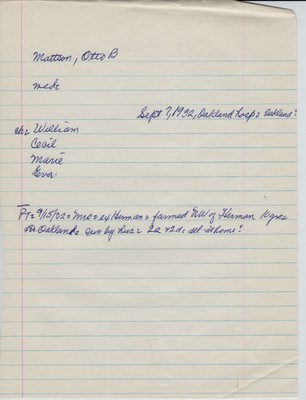 Mattson, Otto B
med:
Sept 7, 1932, Oakland hosp: Oakland:
ch: William
Cecil
Marie
Eva
PT: 9/15/32: Mrs: ex Herman: farmed NW of Herman 10 yrs
Oakland: sur by hus: 2s & 2d: all at home: